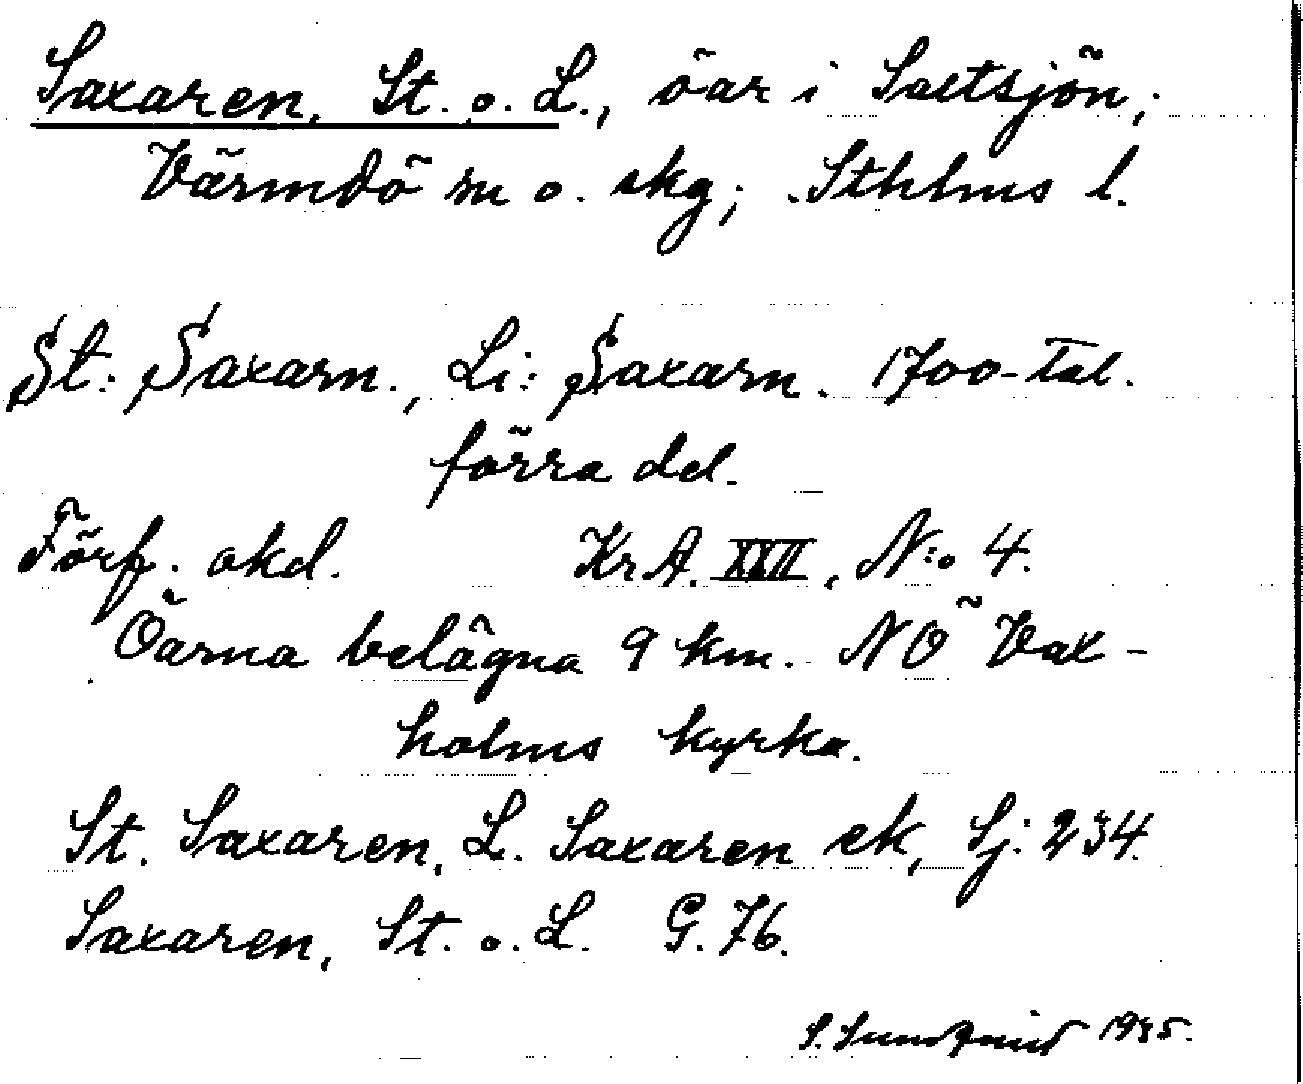 Saxaren, St. o. L., öar i Saltsjön,
Värmdö sn o. skg; Sthlms l.
St: Saxarn., Li: Saxarn. 1700-tal.
förra del.
Förf. okd. KrA. XXII, N:o 4.
Öarna belägna 9 km. NO Vax-
holms kyrka.
St. Saxaren, L. Saxaren ek, Sj: 234.
Saxaren, St. o. L. G. 76.
S. Sundqvist 1935.